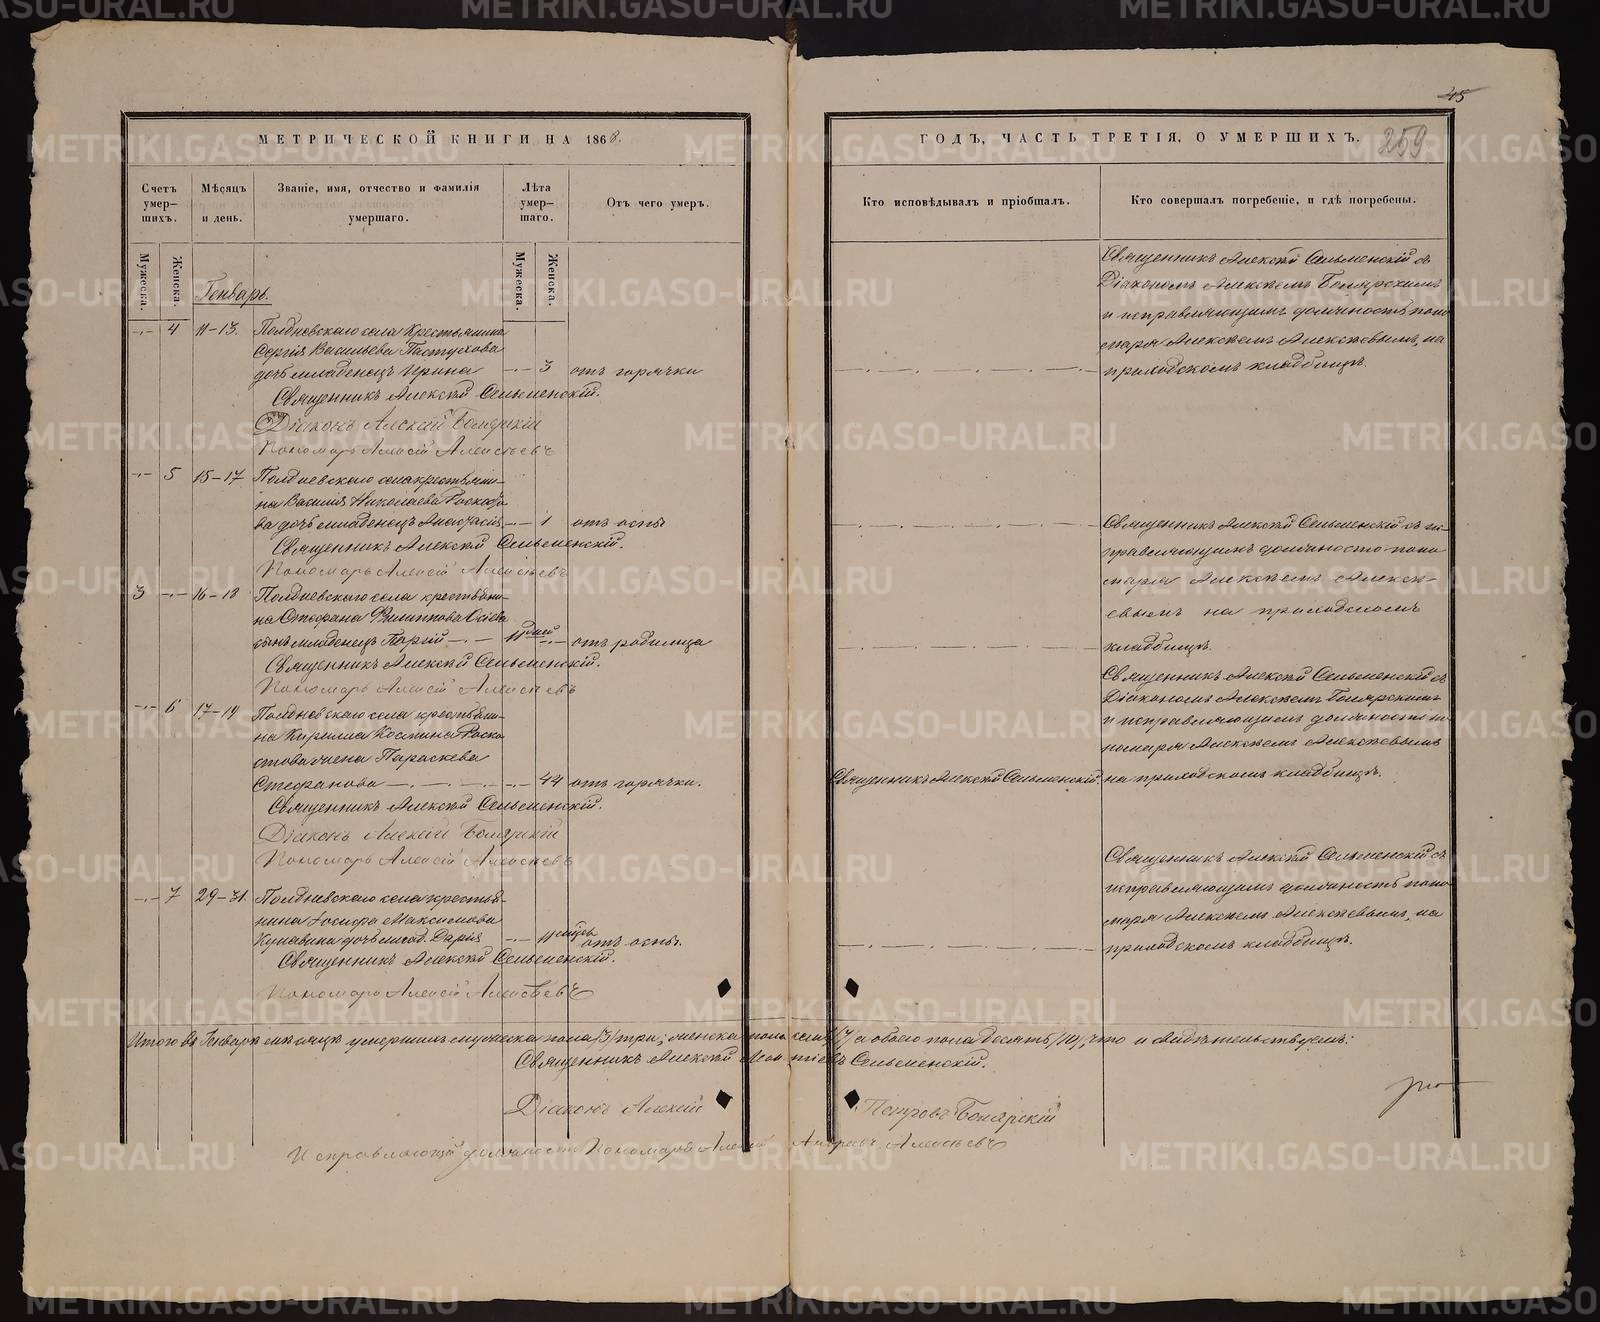 45
МЕТРИЧЕСКОЙ КНИГИ НА 1868.
ГОДЪ, ЧАСТЬ ТРЕТІЯ, О УМЕРШИХЪ.
259
Счетъ умер-шихъ.
Мѣсяцъ и день.
Званіе, имя, отчество и фамилія умершаго.
Лѣта умер-шаго.
Отъ чего умеръ.
Кто исповѣдывалъ и пріобщалъ.
Кто совершалъ погребеніе, и гдѣ погребены.
Мужеска.
Женска.
Мужеска.
Женска.
Генварь.
4 11-13. Полдневскаго села Крестьянина
Сергія Васильева Пастухова
дочь младенецъ Ирина 3 отъ горячки
Священникъ Алексѣй Сельменскій.
Діаконъ Алексій Боярскій
Пономарь Алексій Алексѣевъ
Священникъ Алексѣй Сельменскій съ
Діакономъ Алексѣемъ Боярскимъ
и исправляющимъ должность поно
маря Алексѣемъ Алексѣевымъ, на
приходскомъ кладбищѣ.
5 15-17 Полдневскаго села крестьяни-
на Василія Николаева
ва дочь младенецъ Анастасія 1 отъ оспы
Священникъ Алексѣй Сельменскій.
Пономарь Алексій Алексѣевъ
Священникъ Алексѣй Сельменскій съ ис-
правляющимъ должность поно
маря Алексѣемъ Алексѣ-
евымъ на приходскомъ
кладбищѣ.
3 16-18 Полдневскаго села крестьяни-
на Стефана Филиппова
сынъ младенецъ 11 дней отъ родимца
Священникъ Алексѣй Сельменскій.
Пономарь Алексій Алексѣевъ
6 17-19 Полдневскаго села крестьяни-
на Кирилла Космина Роско
стова жена Параскева
Стефанова 44 отъ горячки.
Священникъ Алексѣй Сельменскій.
Діаконъ Алексій Боярскій
Пономарь Алексій Алексѣевъ
Священникъ Алексѣй Сельменскій.
Священникъ Алексѣй Сельменскій съ
Діакономъ Алексѣемъ Боярскимъ
и исправляющимъ должность по
номаря Алексѣемъ Алексѣевымъ
на приходскомъ кладбищѣ.
7 29-31. Полдневскаго села крестья-
нина Іосифа Максимова
Кунавина дочь млад. Дарія 11 мѣсяц. отъ оспы.
Священникъ Алексѣй Сельменскій.
Пономарь Алексій Алексѣевъ
Священникъ Алексѣй Сельменскій съ
исправляющимъ должность поно
маря Алексѣемъ Алексѣевымъ, на
приходскомъ кладбищѣ.
Итого въ Генварѣ мѣсяцѣ умершихъ мужеска пола /3/ три; женска пола семь /7/ а обоего пола десять /10/, что и свидѣтельствуемъ:
Священникъ Алексѣй Леонтіевъ Сельменскій.
Діаконъ Алексій Петровъ Боярскій
Исправляющій должность Пономаря Алексій Алексѣевъ
METRIKI.GASO-URAL.RU